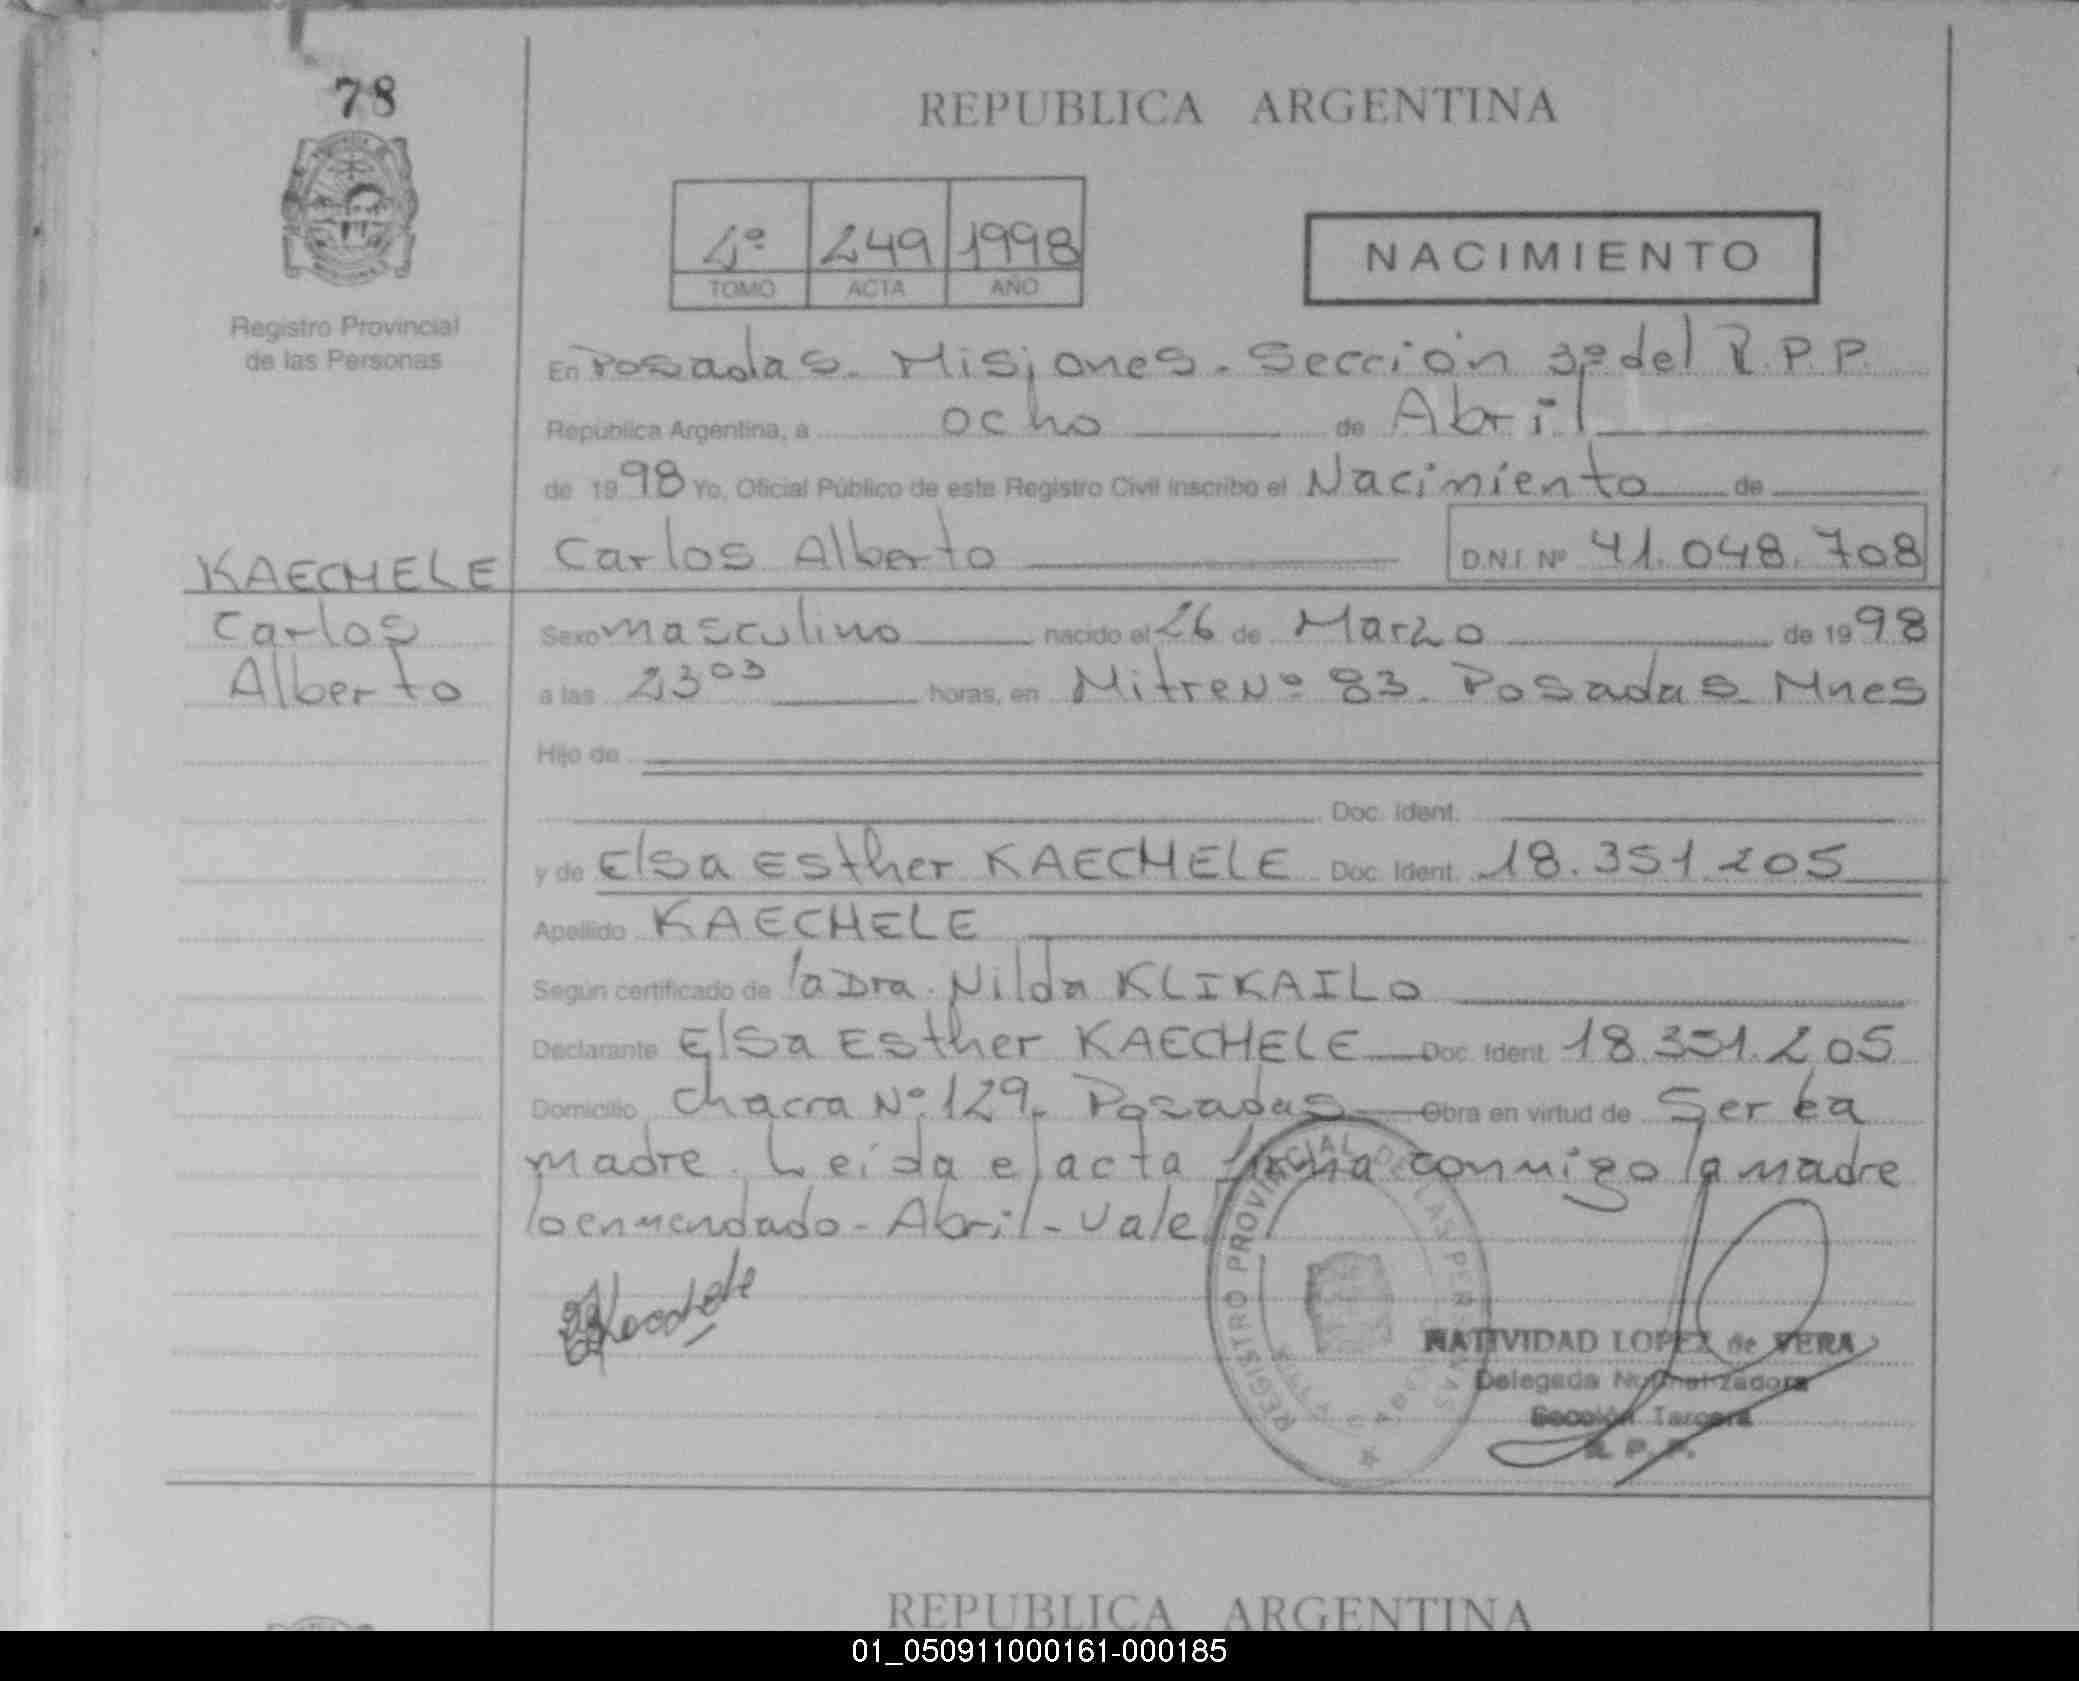 78
REPUBLICA ARGENTINA
4º 249 1998
TOMO ACTA AÑO
NACIMIENTO
Registro Provincial
de las Personas
En Posadas. Misiones. Sección 3º del R.P.P.
República Argentina, a ocho de Abril
de 1998 Yo, Oficial Público de este Registro Civil inscribo el Nacimiento de
KAECHELE Carlos Alberto D.N.I. Nº 41.048.708
Carlos Sexo masculino nacido el 26 de Marzo de 1998
Alberto a las 23 03 horas, en Mitre Nº 83. Posadas Mnes
Hijo de
Doc. Ident.
y de Elsa Esther KAECHELE Doc. Ident. 18.351.205
Apellido KAECHELE
Según certificado de la Dra. Nilda KLIKAILO
Declarante Elsa Esther KAECHELE Doc. Ident. 18.351.205
Domicilio Chacra Nº 129. Posadas Obra en virtud de Ser la
madre. Leída el acta firma conmigo la madre
lo enmendado - Abril - Vale
Kaechele
REGISTRO PROVINCIAL DE LAS PERSONAS
NATIVIDAD LOPEZ de VERA
Delegada
Sección Tercera
R. P. P.
REPUBLICA ARGENTINA
01_050911000161-000185